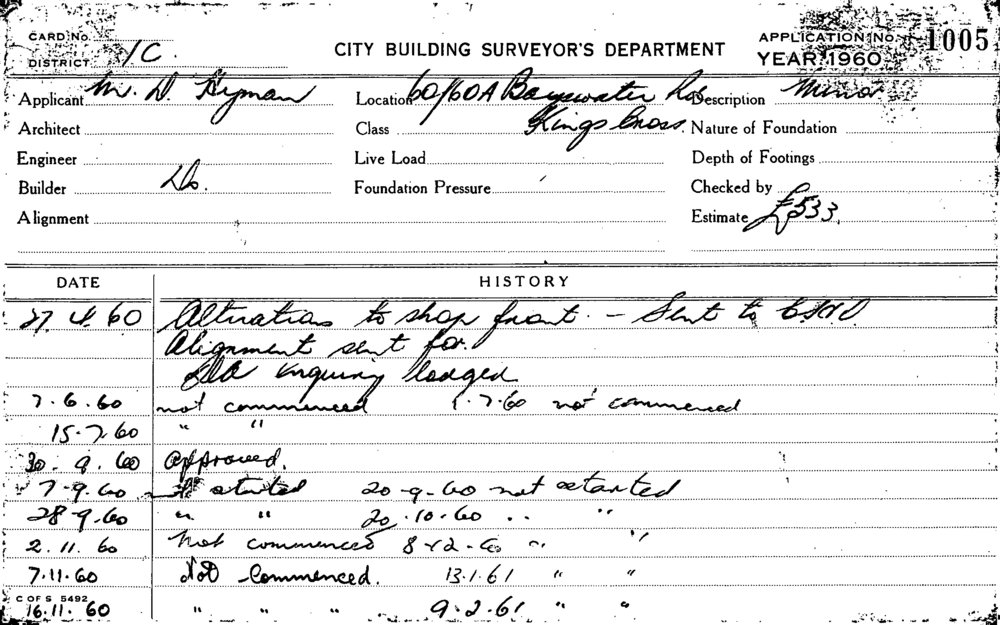 CARD No.
DISTRICT 1C.
CITY BUILDING SURVEYOR'S DEPARTMENT
APPLICATION No. 1005
YEAR 1960
Applicant Mr. D. Hyman
Location 60/60A Bayswater Rd
Kings Cross.
Description Minor
Architect
Class
Nature of Foundation
Engineer
Live Load
Depth of Footings
Builder Do.
Foundation Pressure
Checked by
Alignment
Estimate £533.
DATE HISTORY
27.4.60 Alterations to shop front. - Sent to
Alignment sent for.
enquiry lodged
7.6.60 not commenced 1.7.60 not commenced
15.7.60 " "
30.9.60 Approved.
7.9.60 not started 20-9-60 not started
28.9.60 " " 20.10.60 " "
2.11.60 Not commenced 60 " "
7.11.60 Not Commenced. 13.1.61 " "
C OF S 5492
16.11.60 " " " 9.2.61 " "